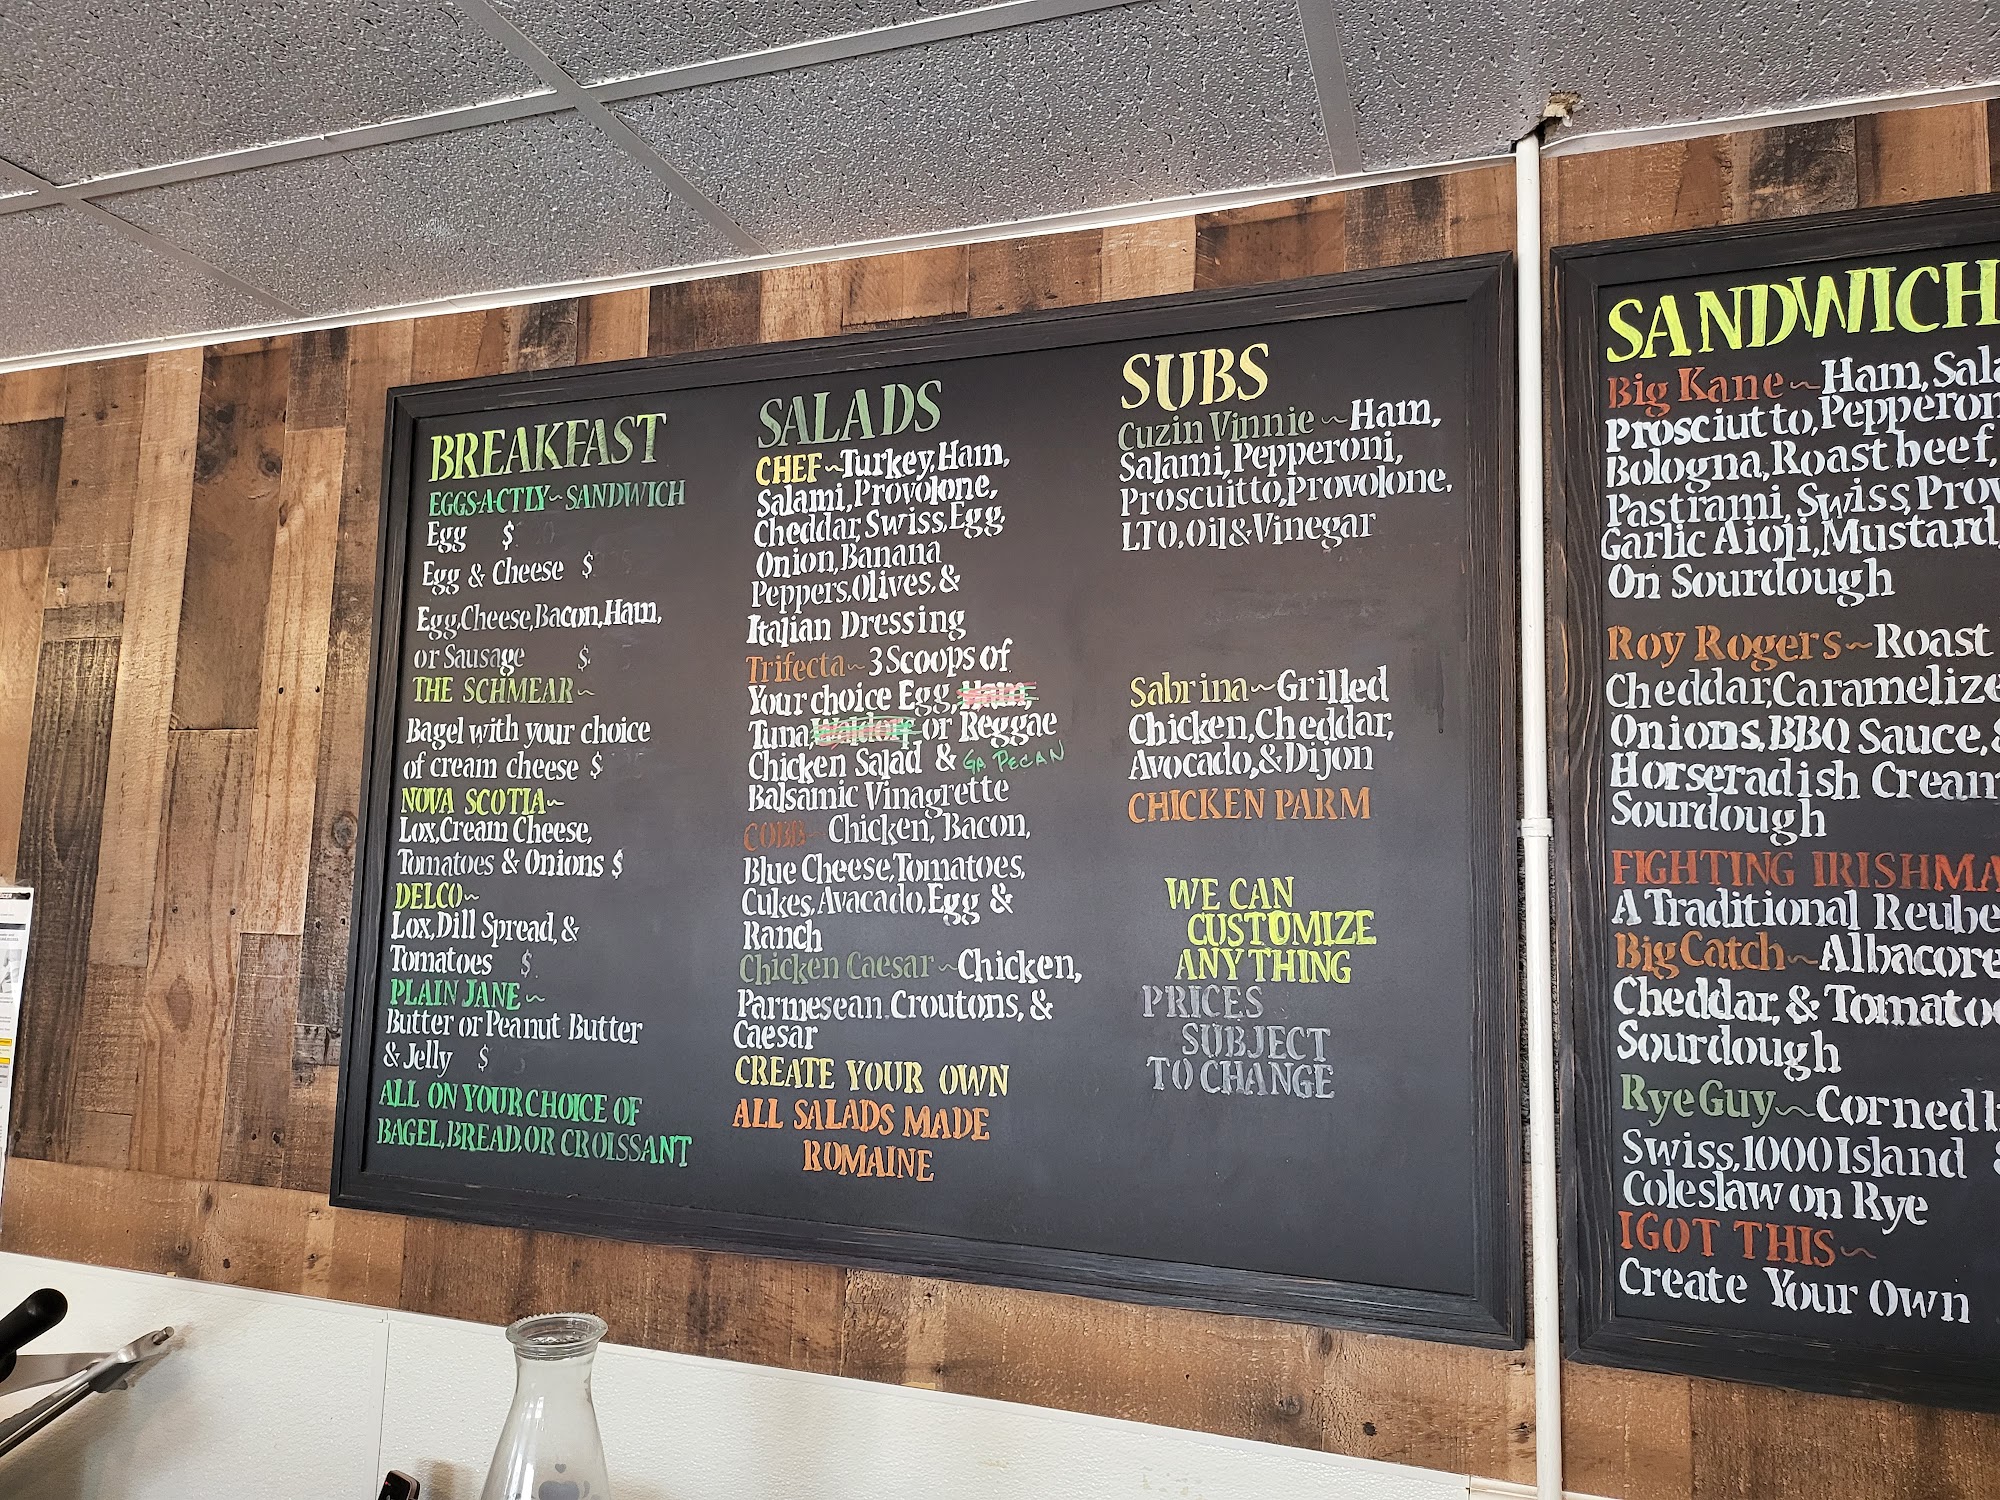 BREAKFAST
EGGS-ACTLY~SANDWICH
Egg $
Egg & Cheese $
Egg,Cheese,Bacon,Ham,
or Sausage $
THE SCHMEAR~
Bagel with your choice
of cream cheese $
NOVA SCOTIA~
Lox,Cream Cheese,
Tomatoes & Onions $
DELCO~
Lox,Dill Spread,&
Tomatoes $
PLAIN JANE~
Butter or Peanut Butter
& Jelly $
ALL ON YOUR CHOICE OF
BAGEL,BREAD,OR CROISSANT
SALADS
CHEF~Turkey,Ham,
Salami,Provolone,
Cheddar,Swiss,Egg,
Onion,Banana
Peppers,Olives,&
Italian Dressing
Trifecta~3 Scoops of
Your choice Egg,Ham,
Tuna,Waldorf or Reggae
Chicken Salad & GA PECAN
Balsamic Vinagrette
COBB~Chicken,Bacon,
Blue Cheese,Tomatoes,
Cukes,Avacado,Egg &
Ranch
Chicken Caesar~Chicken,
Parmesean,Croutons,&
Caesar
CREATE YOUR OWN
ALL SALADS MADE
ROMAINE
SUBS
Cuzin Vinnie~Ham,
Salami,Pepperoni,
Proscuitto,Provolone,
LTO,Oil&Vinegar
Sabrina~Grilled
Chicken,Cheddar,
Avocado,&Dijon
CHICKEN PARM
WE CAN
CUSTOMIZE
ANYTHING
PRICES
SUBJECT
TO CHANGE
SANDWICH
Big Kane~Ham,Sala
Prosciutto,Pepperon
Bologna,Roast beef,
Pastrami,Swiss,Prov
Garlic Aioji,Mustard,
On Sourdough
Roy Rogers~Roast
Cheddar,Caramelize
Onions,BBQ Sauce,&
Horseradish Cream
Sourdough
FIGHTING IRISHMA
A Traditional Reube
Big Catch~Albacore
Cheddar,& Tomato
Sourdough
Rye Guy~Corned
Swiss,1000Island &
Coleslaw on Rye
I GOT THIS~
Create Your Own